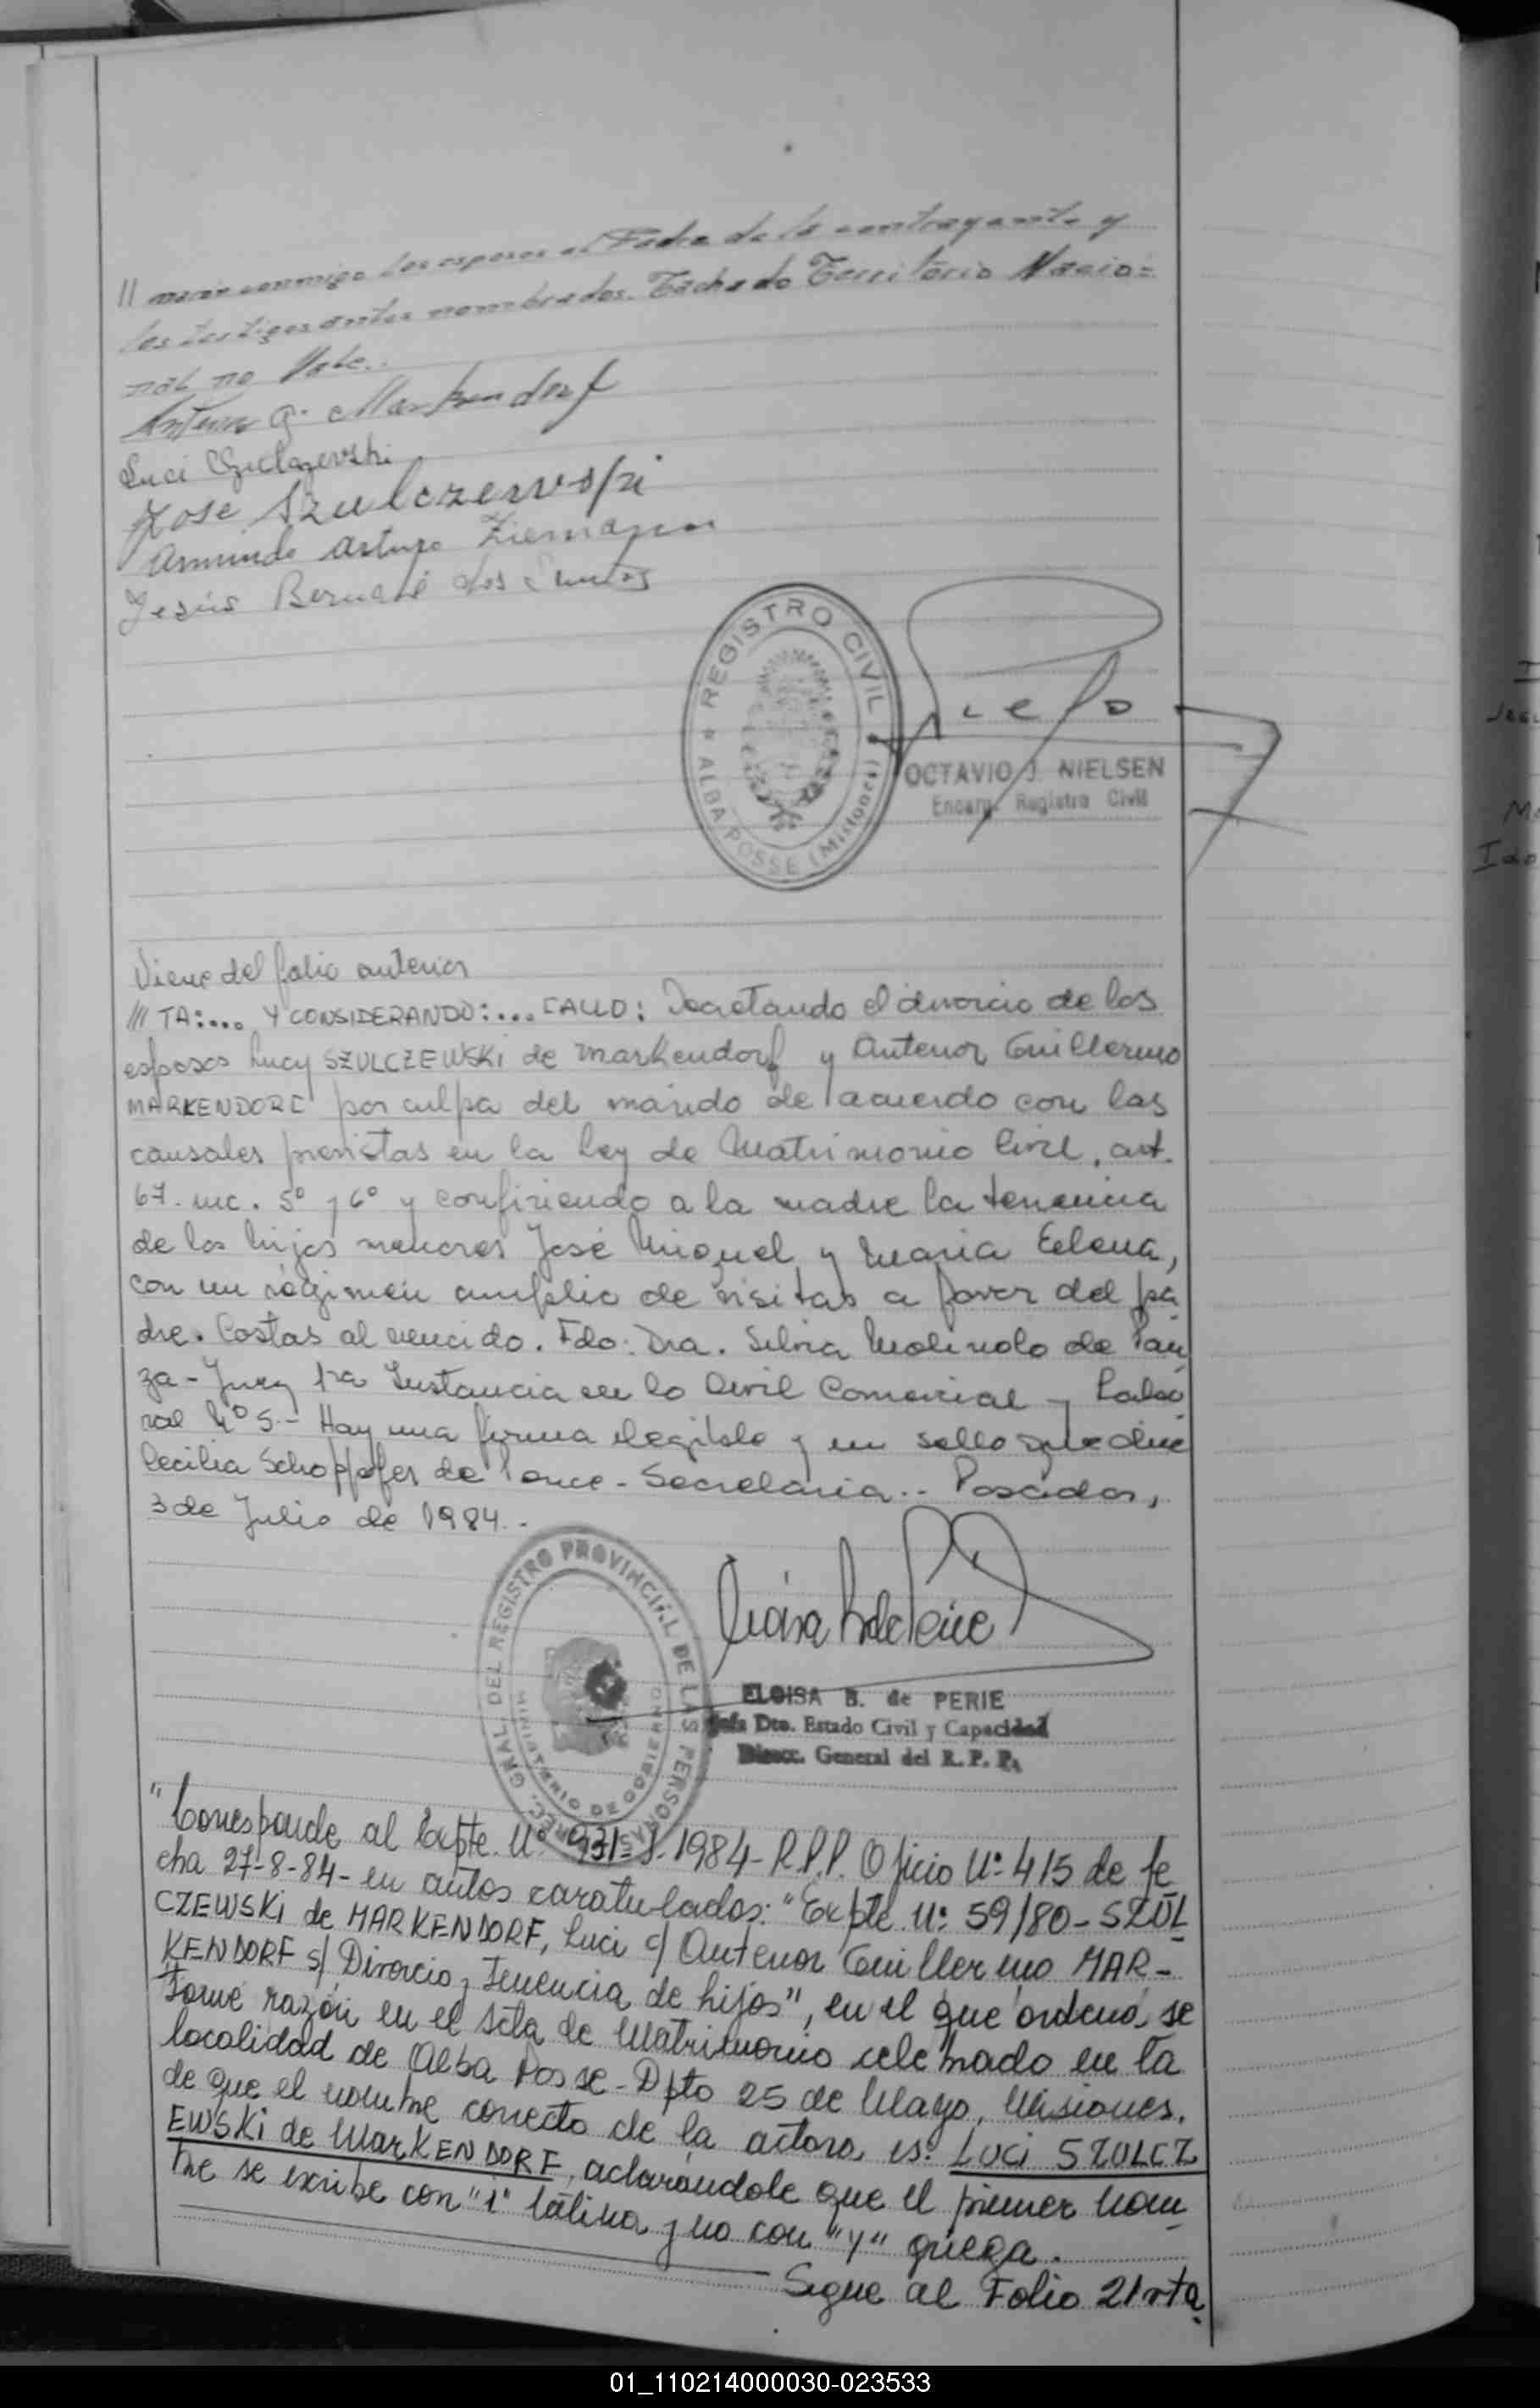 // marán conmigo los esposos el Padre de la contrayente y
los testigos antes nombrados. Tachado Territorio Nacio=
nal no Vale..
Antenor G. Markendorf
Luci Szulczewski
José Szulczewski
Armindo Arturo Ziemann
Jesús Bernardi dos Santos
REGISTRO CIVIL
ALBA POSSE (Misiones)
OCTAVIO J. NIELSEN
Encarg. Registro Civil
Viene del folio anterior
/// TA:... Y CONSIDERANDO:... FALLO: Decretando el divorcio de los
esposos Lucy SZULCZEWSKI de Markendorf y Antenor Guillermo
MARKENDORF por culpa del marido de acuerdo con las
causales previstas en la Ley de Matrimonio Civil, art.
67. inc. 5º y 6º y confiriendo a la madre la tenencia
de los hijos menores José Miguel y María Elena,
con un régimen amplio de visitas a favor del pa
dre. Costas al vencido. Fdo: Dra. Silvia Molinolo de Pan
za - Juez 1ra Instancia en lo Civil Comercial y Labo
ral Nº 5.- Hay una firma ilegible y un sello que dice
Cecilia Schopfofer de Ponce - Secretaria.. Posadas,
3 de Julio de 1984.-
DIREC. GRAL. DEL REGISTRO PROVINCIAL DE LAS PERSONAS
MINISTERIO DE GOBIERNO
ELOISA B. de PERIE
Jefa Dto. Estado Civil y Capacidad
Direcc. General del R. P. P.
"Corresponde al Expte. Nº 931-J-1984- R.P.P. Oficio Nº 415 de fe
cha 27-8-84- en autos caratulados: "Expte. Nº 59/80- SZUL
CZEWSKI de MARKENDORF, Luci c/ Antenor Guillermo MAR-
KENDORF s/ Divorcio y Tenencia de hijos", en el que ordena, se
tome razón en el Acta de Matrimonio celebrado en la
localidad de Alba Posse - Dpto 25 de Mayo, Misiones,
de que el nombre correcto de la actora es: LUCI SZULCZ
EWSKI de MARKENDORF, aclarándole que el primer nom
bre se escribe con "i" latina y no con "y" griega.
Sigue al Folio 21 vta.
01_110214000030-023533